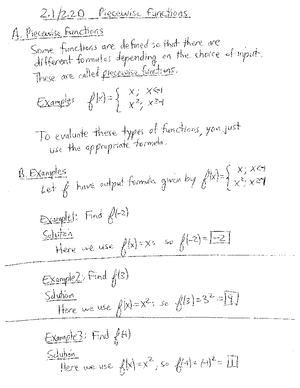 2.1/2.2D Piecewise Functions
A. Piecewise Functions
Some functions are defined so that there are
different formulas depending on the choice of input.
These are called piecewise functions.
Example: f(x) = { x; x<-1
x², x≥-1
To evaluate these types of functions, you just
use the appropriate formula.
B. Examples
Let f have output formula given by f(x) = { x; x<-1
x²; x≥-1
Example 1: Find f(-2)
Solution
Here we use f(x)=x; so f(-2)=-2
Example 2: Find f(3)
Solution
Here we use f(x)=x²; so f(3)=3²=9
Example 3: Find f(-1)
Solution
Here we use f(x)=x², so f(-1)=(-1)²=1